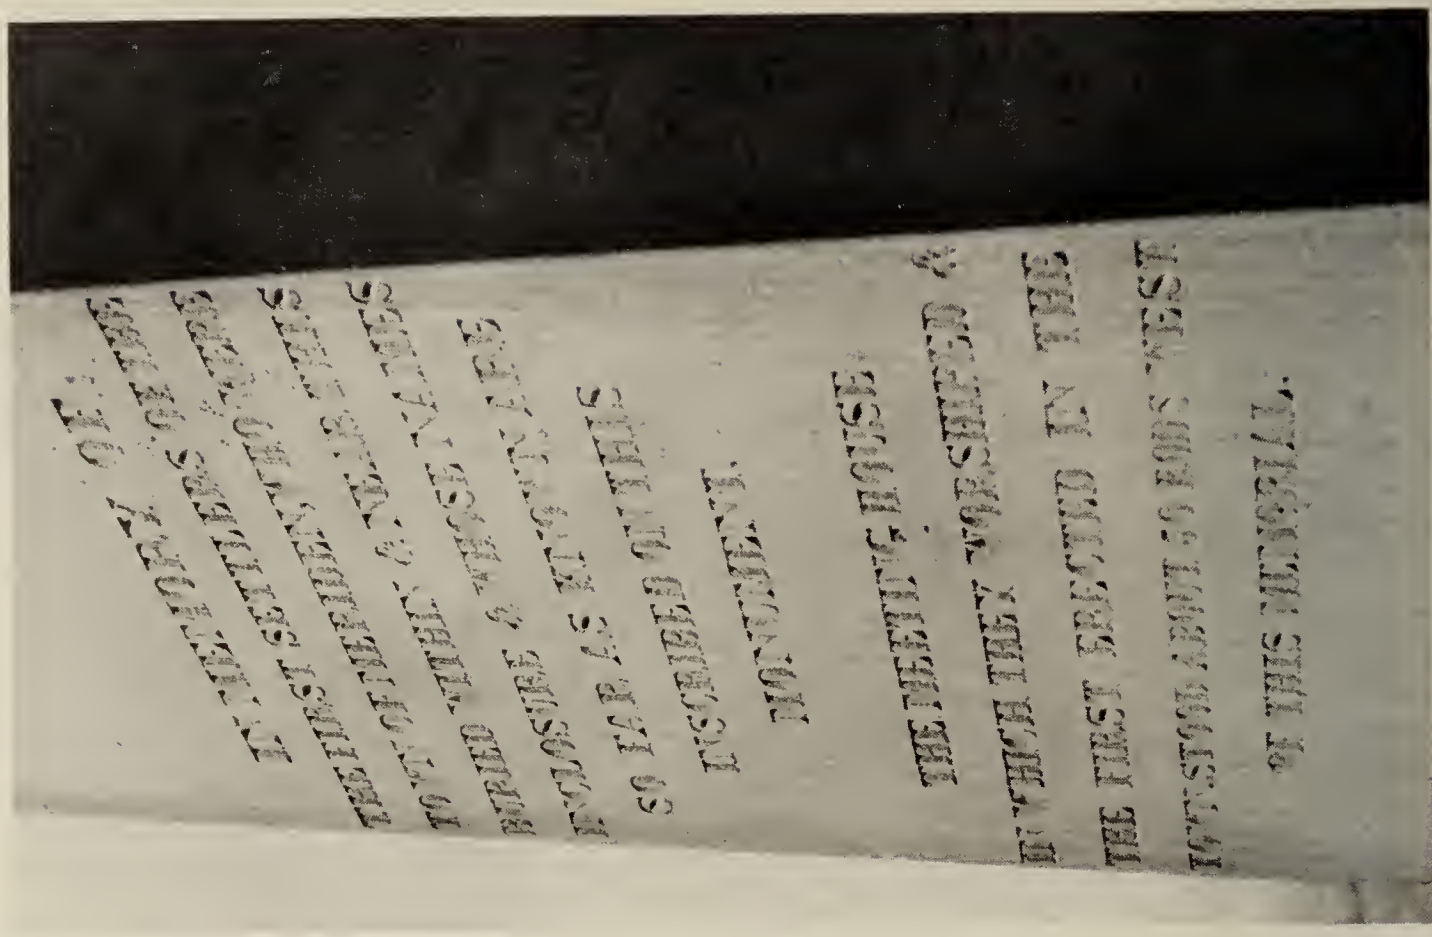 IN MEMORY OF
THE FIRST SETTLERS OF
TOWN OF MERIDEN, CONN. WHO WERE
BURIED WITHIN & NEAR THIS
INCLOSURE & WHOSE NAMES
SO FAR AS KNOWN ARE
INSCRIBED ON THIS
MONUMENT.
THE MEETING HOUSE
IN WHICH THEY WORSHIPED &
THE FIRST ERECTED IN THE
STOOD ABOUT RODS WEST
THIS